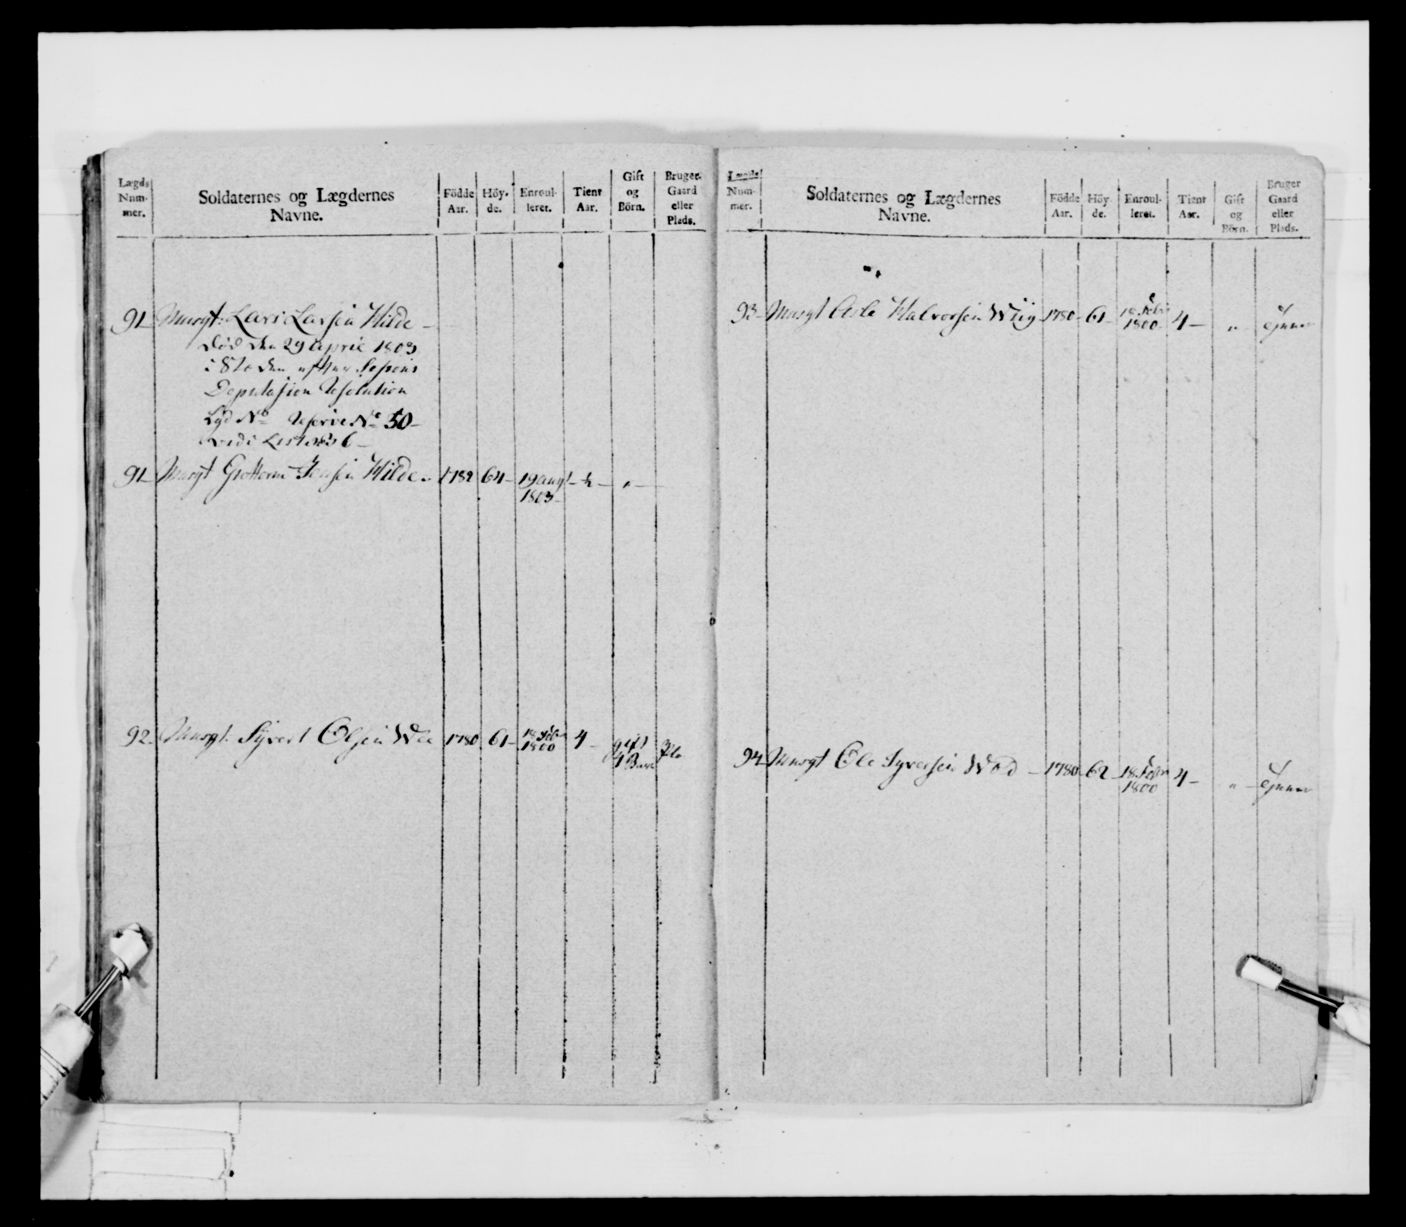 Lægds Num- mer.
Soldaternes og Lægdernes Navne.
Födde Aar.
Höy- de.
Enroul- leret.
Tient Aar.
Gift og Börn.
Bruger Gaard eller Plads.
91 Musqt: Lars Larsen Hilde
død den 29 April 1803
i Staden efter Sessions
Deputasion Resolution
Lyd No Reserve No 50
91 Musqt Guttorm Jensen Hilde 1782 64 19 Augt 1803 "
92 Musqt. Syvert Olsen 1780 61 18 Febr 1800 4 gift 1 Barn
Lægds Num- mer.
Soldaternes og Lægdernes Navne.
Födde Aar.
Höy de.
Enroul- leret.
Tient Aar.
Gift og Börn.
Bruger Gaard eller Plads.
93 Musqt Halvorsen Wiig 1780 61 18 Febr 1800 4 " tjener
94 Musqt Ole Syversen 1780 62 18 Febr 1800 4 " tjener